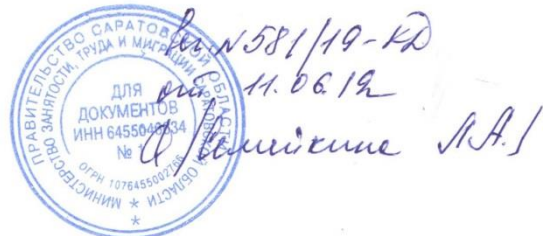 ПРАВИТЕЛЬСТВО САРАТОВСКОЙ ОБЛАСТИ
МИНИСТЕРСТВО ЗАНЯТОСТИ, ТРУДА И МИГРАЦИИ САРАТОВСКОЙ ОБЛАСТИ
ДЛЯ
ДОКУМЕНТОВ
ИНН
№ 1
ОГРН 1076455002766
вх. N 581/19-КД
от 11.06.19
Л.А.)